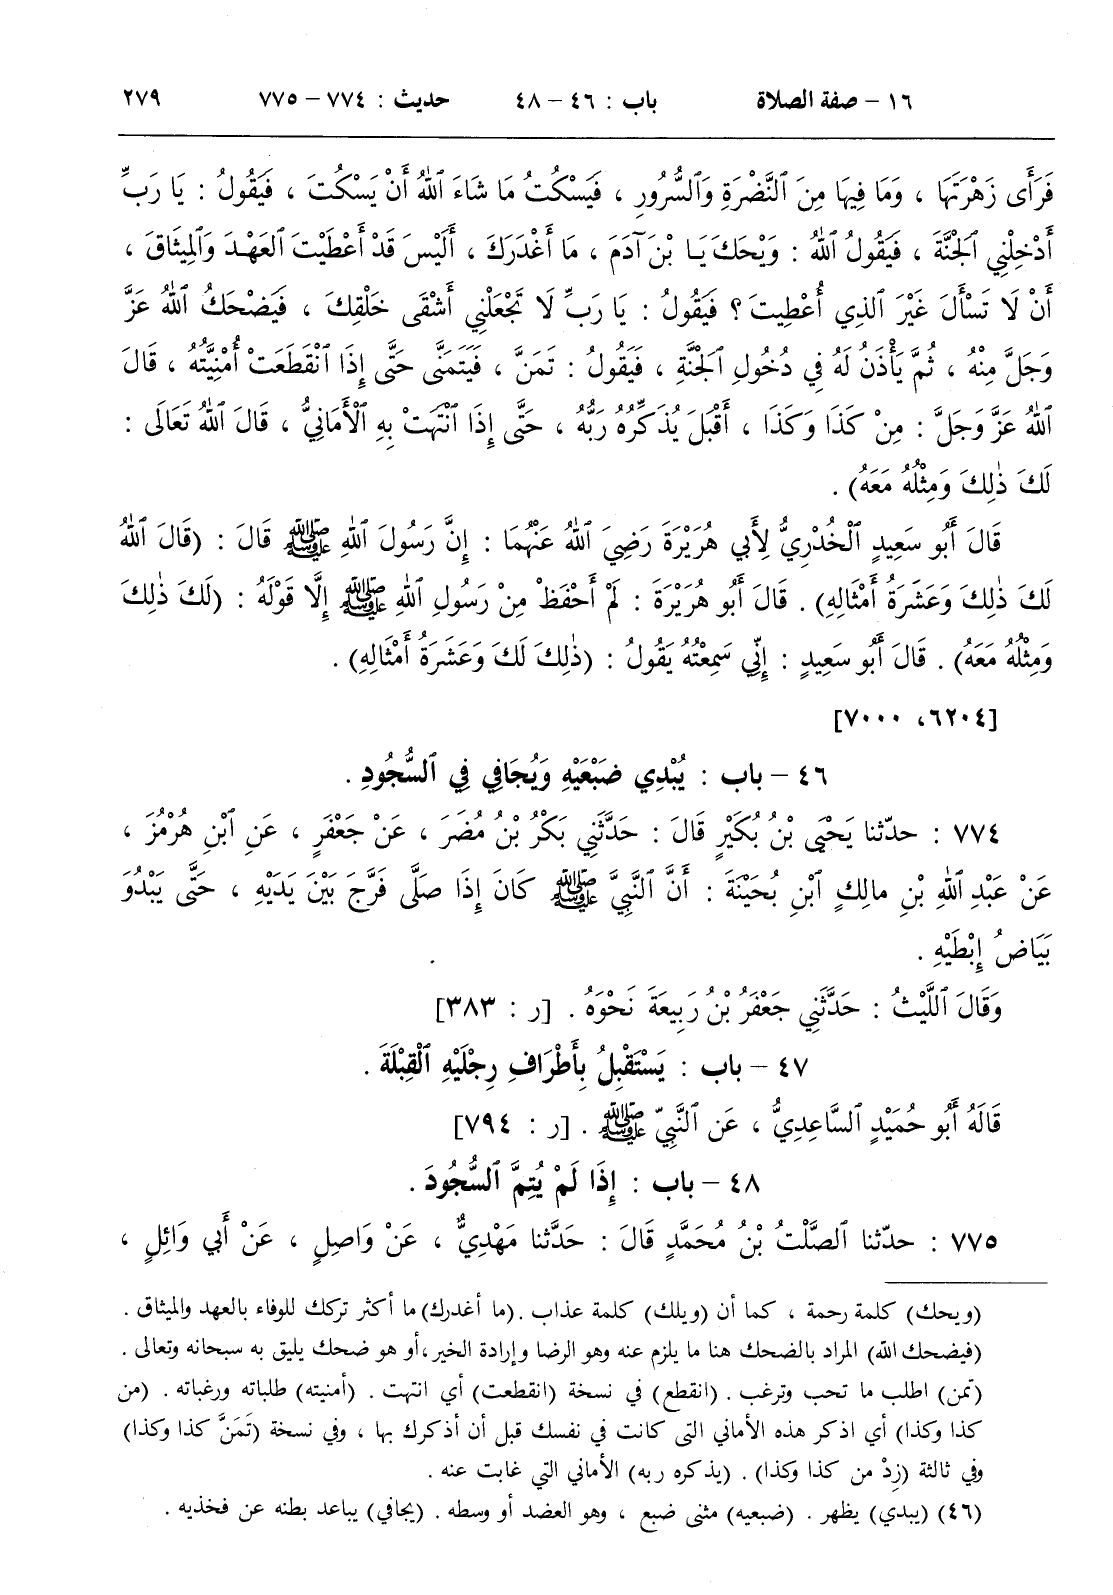 ١٦ – صفة الصلاة باب : ٤٦ – ٤٨ حديث : ٧٧٤ – ٧٧٥ ٢٧٩
فَرَأَى زَهْرَتَهَا ، وَمَا فِيهَا مِنَ ٱلنَّضْرَةِ وَٱلسُّرُورِ ، فَيَسْكُتُ مَا شَاءَ ٱللهُ أَنْ يَسْكُتَ ، فَيَقُولُ : يَا رَبِّ
أَدْخِلْنِي ٱلجَنَّةَ ، فَيَقُولُ ٱللهُ : وَيْحَكَ يَا بْنَ آدَمَ ، مَا أَغْدَرَكَ ، أَلَيْسَ قَدْ أَعْطَيْتَ ٱلعَهْدَ وَٱلمِيثَاقَ ،
أَنْ لَا تَسْأَلَ غَيْرَ ٱلذِي أُعْطِيتَ ؟ فَيَقُولُ : يَا رَبِّ لَا تَجْعَلْنِي أَشْقَى خَلْقِكَ ، فَيَضْحَكُ ٱللهُ عَزَّ
وَجَلَّ مِنْهُ ، ثُمَّ يَأْذَنُ لَهُ فِي دُخُولِ ٱلجَنَّةِ ، فَيَقُولُ : تَمَنَّ ، فَيَتَمَنَّى حَتَّى إِذَا ٱنْقَطَعَتْ أُمْنِيَّتُهُ ، قَالَ
ٱللهُ عَزَّ وَجَلَّ : مِنْ كَذَا وَكَذَا ، أَقْبَلَ يُذَكِّرُهُ رَبُّهُ ، حَتَّى إِذَا ٱنْتَهَتْ بِهِ ٱلْأَمَانِيُّ ، قَالَ ٱللهُ تَعَالَى :
لَكَ ذٰلِكَ وَمِثْلُهُ مَعَهُ) .
قَالَ أَبُو سَعِيدٍ ٱلْخُدْرِيُّ لِأَبِي هُرَيْرَةَ رَضِيَ ٱللهُ عَنْهُمَا : إِنَّ رَسُولَ ٱللهِ ﷺ قَالَ : (قَالَ ٱللهُ
لَكَ ذٰلِكَ وَعَشَرَةُ أَمْثَالِهِ) . قَالَ أَبُو هُرَيْرَةَ : لَمْ أَحْفَظْ مِنْ رَسُولِ ٱللهِ ﷺ إِلَّا قَوْلَهُ : (لَكَ ذٰلِكَ
وَمِثْلُهُ مَعَهُ) . قَالَ أَبُو سَعِيدٍ : إِنِّي سَمِعْتُهُ يَقُولُ : (ذٰلِكَ لَكَ وَعَشَرَةُ أَمْثَالِهِ) .
[٦٢٠٤، ٧٠٠٠]
٤٦ – باب : يُبْدِي ضَبْعَيْهِ وَيُجَافِي فِي ٱلسُّجُودِ .
٧٧٤ : حدّثنا يَحْيَى بْنُ بُكَيْرٍ قَالَ : حَدَّثَنِي بَكْرُ بْنُ مُضَرَ ، عَنْ جَعْفَرٍ ، عَنِ ٱبْنِ هُرْمُزَ ،
عَنْ عَبْدِ ٱللهِ بْنِ مالِكٍ ٱبْنِ بُحَيْنَةَ : أَنَّ ٱلنَّبِيَّ ﷺ كَانَ إِذَا صَلَّى فَرَّجَ بَيْنَ يَدَيْهِ ، حَتَّى يَبْدُوَ
بَيَاضُ إِبْطَيْهِ .
وَقَالَ ٱللَّيْثُ : حَدَّثَنِي جَعْفَرُ بْنُ رَبِيعَةَ نَحْوَهُ . [ر : ٣٨٣]
٤٧ – باب : يَسْتَقْبِلُ بِأَطْرَافِ رِجْلَيْهِ ٱلْقِبْلَةَ .
قَالَهُ أَبُو حُمَيْدٍ ٱلسَّاعِدِيُّ ، عَنِ ٱلنَّبِيِّ ﷺ . [ر : ٧٩٤]
٤٨ – باب : إِذَا لَمْ يُتِمَّ ٱلسُّجُودَ .
٧٧٥ : حدّثنا ٱلصَّلْتُ بْنُ مُحَمَّدٍ قَالَ : حَدَّثَنا مَهْدِيٌّ ، عَنْ وَاصِلٍ ، عَنْ أَبِي وَائِلٍ ،
(ويحك) كلمة رحمة ، كما أن (ويلك) كلمة عذاب .(ما أغدرك) ما أكثر تركك للوفاء بالعهد والميثاق .
(فيضحك الله) المراد بالضحك هنا ما يلزم عنه وهو الرضا وإرادة الخير،أو هو ضحك يليق به سبحانه وتعالى .
(تمن) اطلب ما تحب وترغب . (انقطع) في نسخة (انقطعت) أي انتهت . (أمنيته) طلباته ورغباته . (من
كذا وكذا) أي اذكر هذه الأماني التى كانت في نفسك قبل أن أذكرك بها ، وفي نسخة (تَمَنَّ كذا وكذا)
وفي ثالثة (زِدْ من كذا وكذا) . (يذكره ربه) الأماني التي غابت عنه .
(٤٦) (يبدي) يظهر . (ضبعيه) مثنى ضبع ، وهو العضد أو وسطه . (يجافي) يباعد بطنه عن فخذيه .